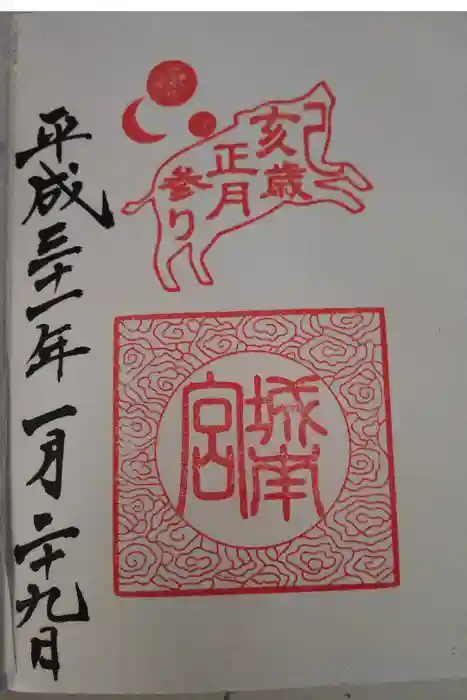 己
亥歳
正月
参り
城南
宮
平成三十一年一月二十九日